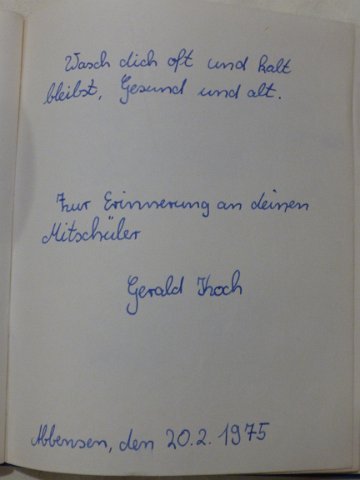 Wasch dich oft und kalt
bleibst, Gesund und alt.
Zur Erinnerung an deinen
Mitschüler
Gerald Koch
Abbensen, den 20.2.1975